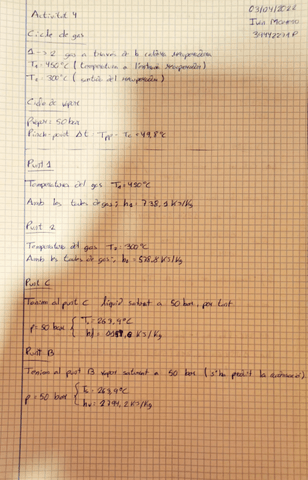 Activitat 4
03/04/2022
Cicle de gas
1 -> 2 gas a través de la caldera recuperadora
T₁ = 450°C (temperatura a l'entrada recuperador)
T₂ = 300°C (sortida del recuperador)
Cicle de vapor
50 bar
Pinch-point Δt: Tpp = Tc + 49,8°C
Punt 1
Temperatura del gas T₁ = 450°C
Amb les taules de gas; h₁ = 738, KJ/Kg
Punt 2
Temperatura del gas T₂ = 300°C
Amb les taules de gas; h₂ = 578,8 KJ/Kg
Punt C
Tenim al punt C líquid saturat a 50 bar, per tant
p = 50 bar { Tc = 263,9°C
KJ/Kg
Punt B
Tenim al punt B vapor saturat a 50 bar (s'ha produït la
p = 50 bar { = 263,9°C
hv = 2794,2 KJ/Kg